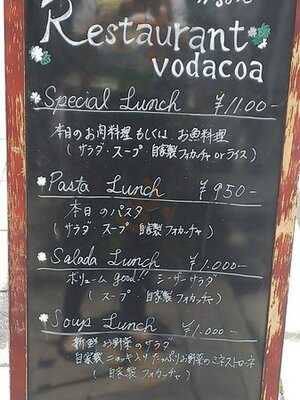 Restaurant
vodacoa
Special Lunch ¥1100-
本日のお肉料理 もしくは お魚料理
(サラダ・スープ・自家製フォカッチャorライス)
Pasta Lunch ¥950-
本日のパスタ
(サラダ・スープ・自家製フォカッチャ)
Salada Lunch ¥1.000-
ボリュームgood!! シーザーサラダ
(スープ・自家製フォカッチャ)
Soup Lunch ¥1.000-
新鮮お野菜のサラダ
自家製ニョッキ入りたっぷりお野菜のミネストローネ
(自家製フォカッチャ)